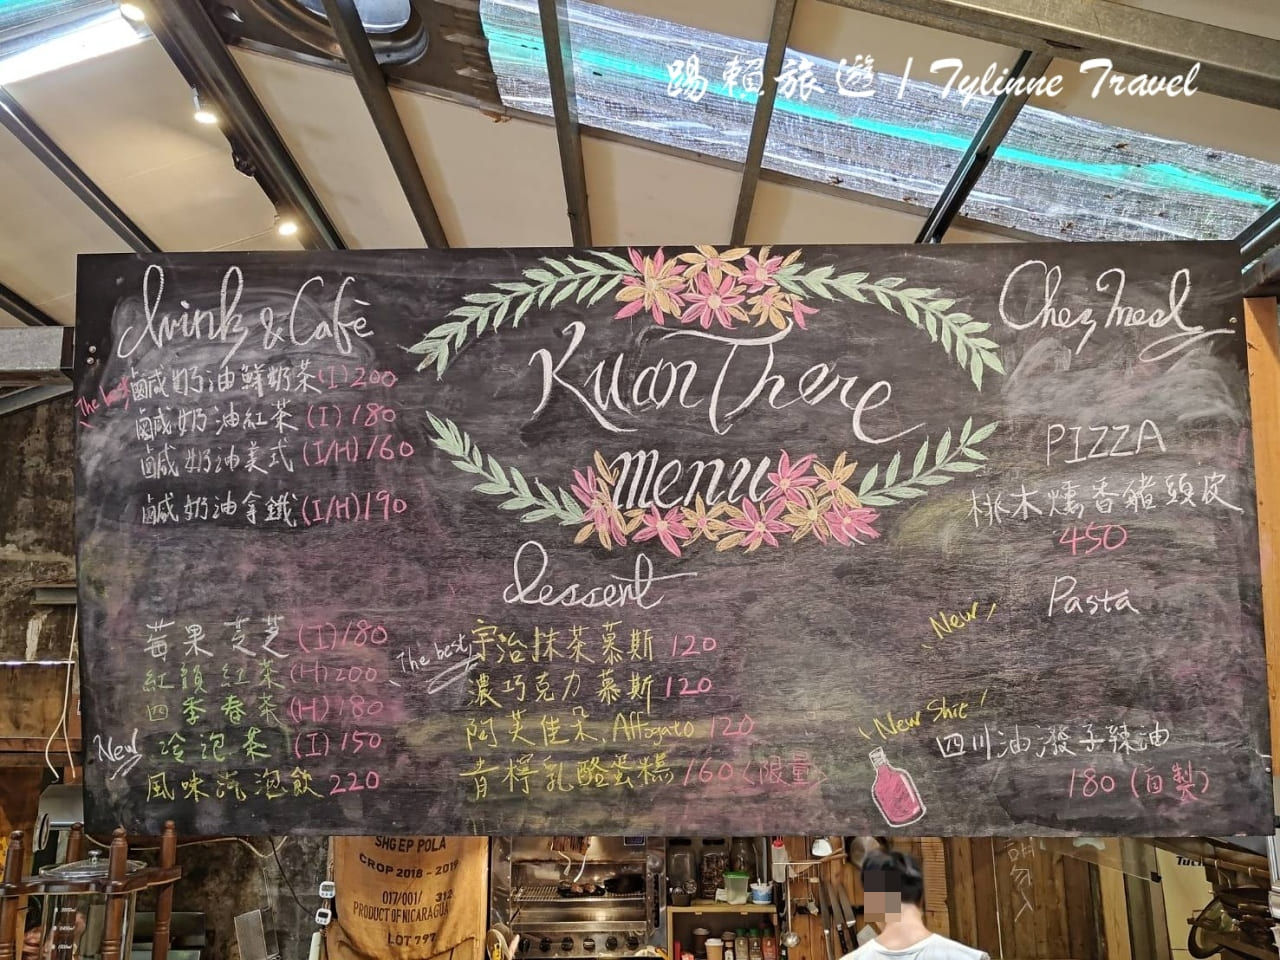 踢賴旅遊 / Tylinne Travel
Drink & Café
The best
鹹奶油鮮奶茶(I) 200
鹹奶油紅茶 (I) 180
鹹奶油美式 (I/H) 160
鹹奶油拿鐵 (I/H) 190
莓果芝芝 (I) 180
紅韻紅茶 (H) 200
四季春茶 (H) 180
New
冷泡茶 (I) 150
風味氣泡飲 220
Kuan There
menu
dessert
The best
宇治抹茶慕斯 120
濃巧克力慕斯 120
阿芙佳朵 Affogato 120
青檸乳酪蛋糕 160 (限量)
Chez Meal
PIZZA
桃木燻香豬頭皮
450
Pasta
New
New Shit
四川油潑子辣油
180 (自製)
SHG EP POLA
CROP 2018 - 2019
017/001/ 312
PRODUCT OF NICARAGUA
LOT 797
勿入